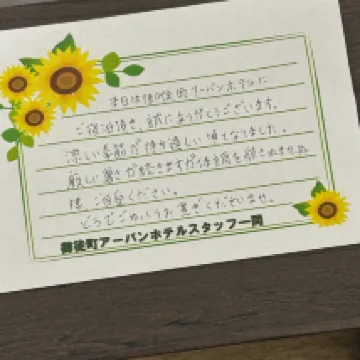 本日は御徒町アーバンホテルに
ご宿泊頂き、誠にありがとうございます。
涼しい季節が待ち遠しい頃となりました。
厳しい暑さが続きますが体調を崩されませぬ
様、ご自愛ください。
どうぞごゆっくりお寛ぎくださいませ。
御徒町アーバンホテルスタッフ一同